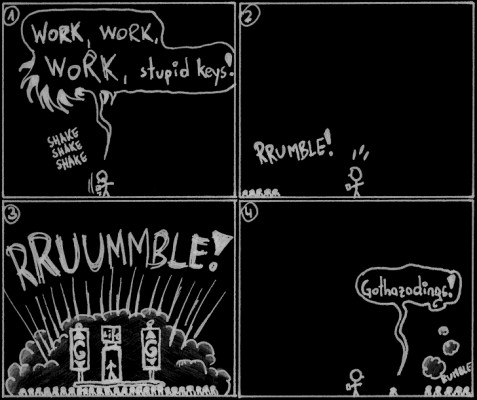 1
WORK, WORK,
WORK, stupid keys!
SHAKE
SHAKE
SHAKE
2
RRUMBLE!
3
RRUUMMBLE!
G G
4
Gothazodings!
RUMBLE